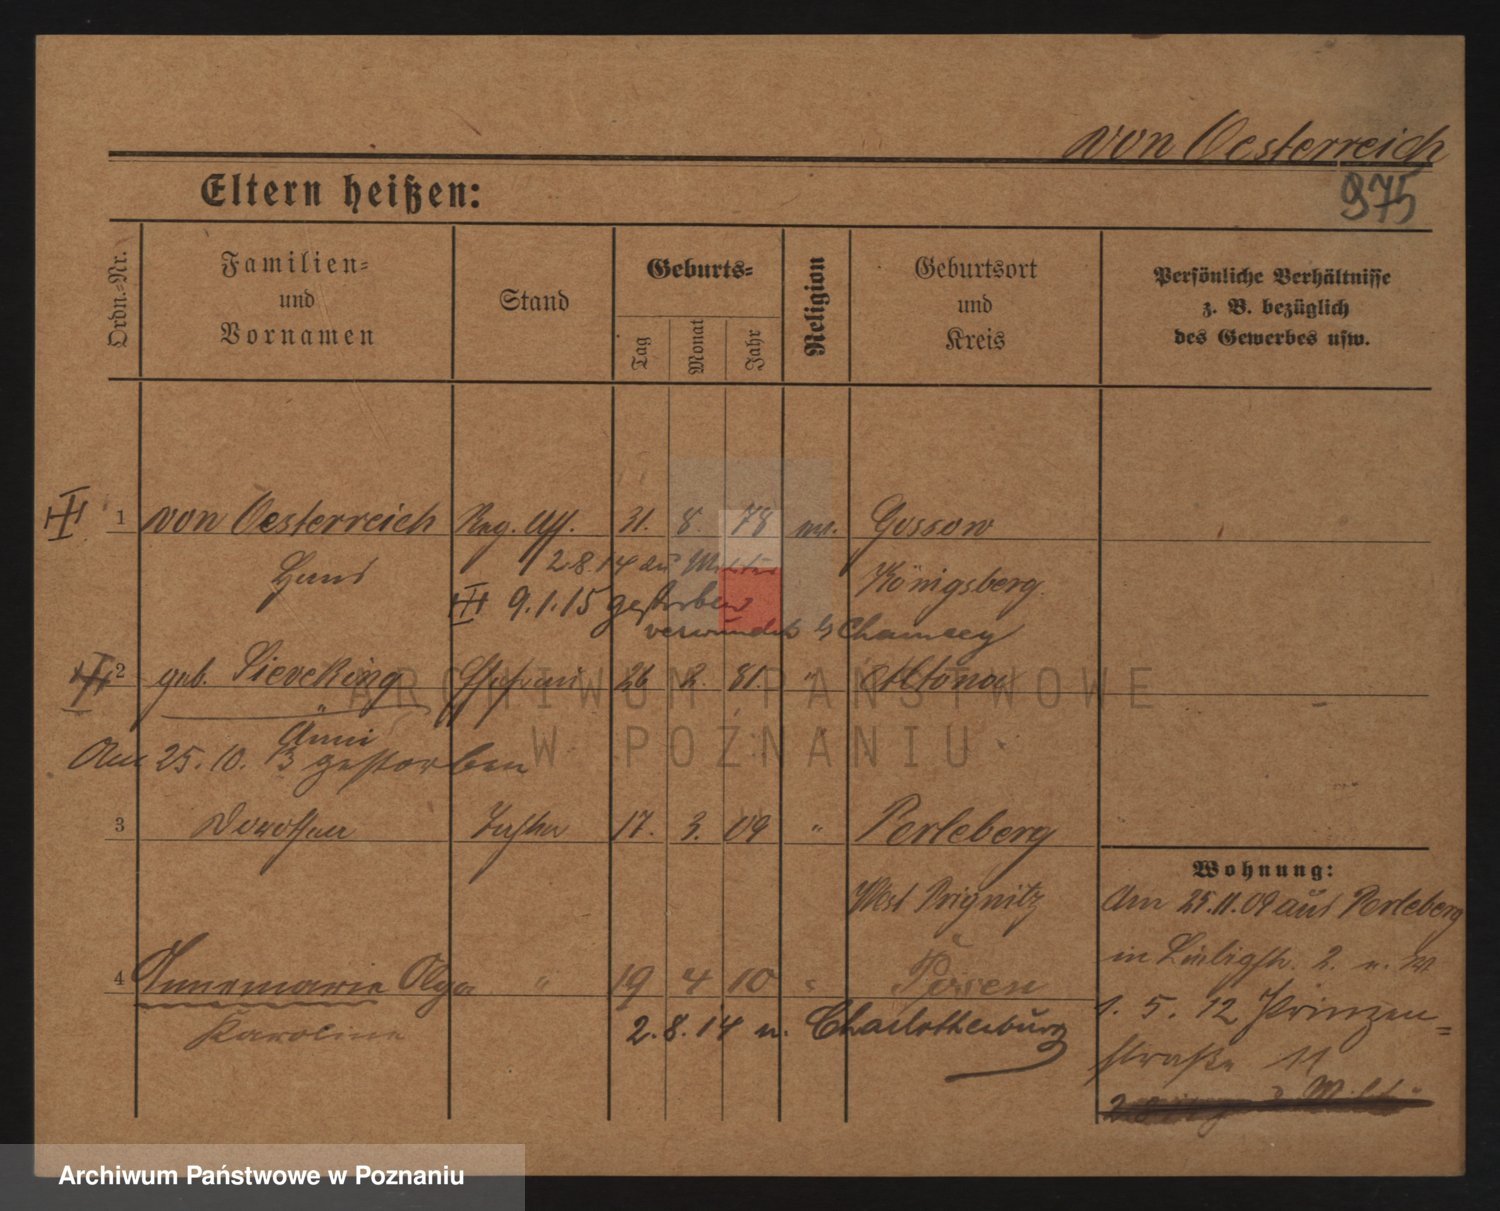 von Oesterreich
975
Eltern heißen:
Ordn.-Nr.
Familien-
und
Vornamen
Stand
Geburts-
Tag
Monat
Jahr
Religion
Geburtsort
und
Kreis
Persönliche Verhältnisse
z. B. bezüglich
des Gewerbes usw.
1 von Oesterreich Reg. Ass. 31. 8. 78 Gossow
Hans 2.8.14 zu Königsberg
9.1.15 gestorben
verwundet Chauncy
2 geb. Sieveking Ehefrau 26 2. 81. " Altona
Anni
Am 25. 10. 13 gestorben
3 Dorothea Tochter 17. 3. 09 " Perleberg
West Prignitz
4 Annemarie Olga " 19 4 10 " Posen
Karoline
2.8.14 n. Charlottenburg
Wohnung:
Am 25.11.09 aus Perleberg
in 2.
1. 5. 12 Prinzen=
straße 11
ARCHIWUM PAŃSTWOWE
W POZNANIU
Archiwum Państwowe w Poznaniu